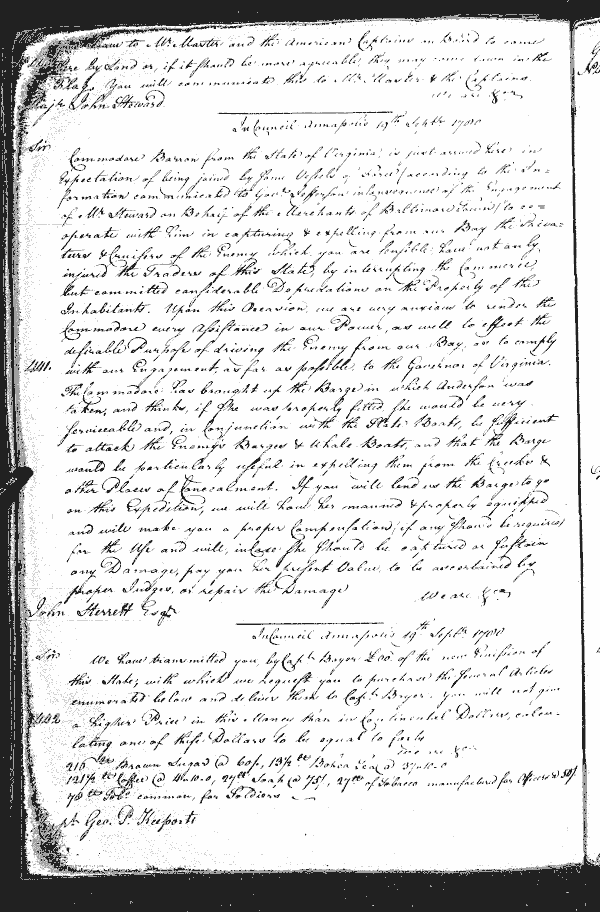 to Mr. Marter and the American Captains on Board to come
by Land or, if it should be more agreeable, they may come down in the
Flag. You will communicate this to Mr. Marter & the Captains.
We are &ca
Majr. John Steward
In Council Annapolis 19th Septr. 1780
Sir
Commodore Barron from the State of Virginia is just arrived here in
Expectation of being joined by some Vessels of Force (according to the In-
formation communicated to Govr. Jefferson in consequence of the Engagement
of Mr. Steward on Behalf of the Merchants of Baltimore Town) to co-
operate with him in capturing & expelling from our Bay the Priva-
teers & Cruisers of the Enemy which, you are sensible, have not only
injured the Traders of this State, by interrupting the Commerce
but committed considerable Depredations on the Property of the
Inhabitants. Upon this Occasion, we are very anxious to render the
Commodore every Assistance in our Power, as well to effect the
desirable Purpose of driving the Enemy from our Bay, as to comply
with our Engagement, as far as possible, to the Governor of Virginia.
The Commodore has brought up the Barge in which Anderson was
taken, and thinks, if she was properly fitted she would be very
serviceable and, in Conjunction with the State Boats, be sufficient
to attack the Enemy's Barges & Whale Boats, and that the Barge
would be particularly useful in expelling them from the Creeks &
other Places of Concealment. If you will lend us the Barge to go
on this Expedition, we will have her manned & properly equipped
and will make you a proper Compensation (if any should be required)
for the Use and will, in case she should be captured or sustain
any Damage, pay you her present Value, to be ascertained by
proper Judges, or repair the Damage
We are &ca
John Sterrett Esqr.
In Council Annapolis 19th Septr. 1780
Sir
We have transmitted you, by Capt. Beyer of the new Emission of
this State; with which we request you to purchase the several Articles
enumerated below and deliver them to Capt. Beyer. you will not give
a higher Price in this Money than in Continental Dollars, calcu-
lating one of these Dollars to be equal to forty
We are &ca
Brown Sugar @ 60/, Bohea Tea @
Coffee @ Soap @ 75/, of Tobacco manufactured for Officers @
common, for Soldiers
Mr. Geo. P. Keeports